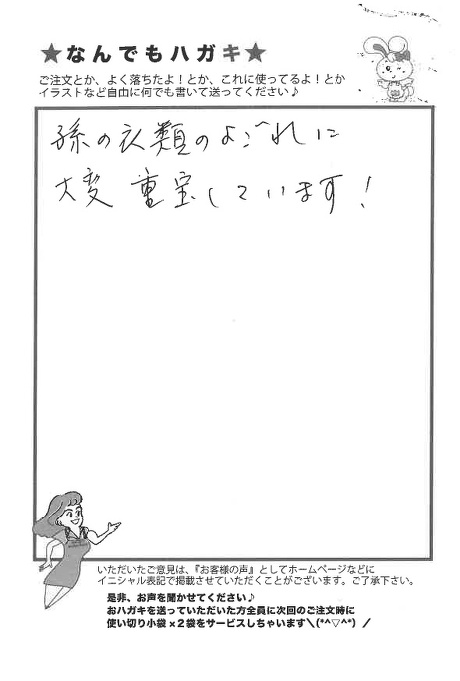 ★なんでもハガキ★
ご注文とか、よく落ちたよ！とか、これに使ってるよ！とか
イラストなど自由に何でも書いて送ってください♪
孫の衣類のよごれに
大変重宝しています！
いただいたご意見は、『お客様の声』としてホームページなどに
イニシャル表記で掲載させていただくことがございます。ご了承下さい。
是非、お声を聞かせてください♪
おハガキを送っていただいた方全員に次回のご注文時に
使い切り小袋ｘ２袋をサービスしちゃいます＼(*^▽^*)／